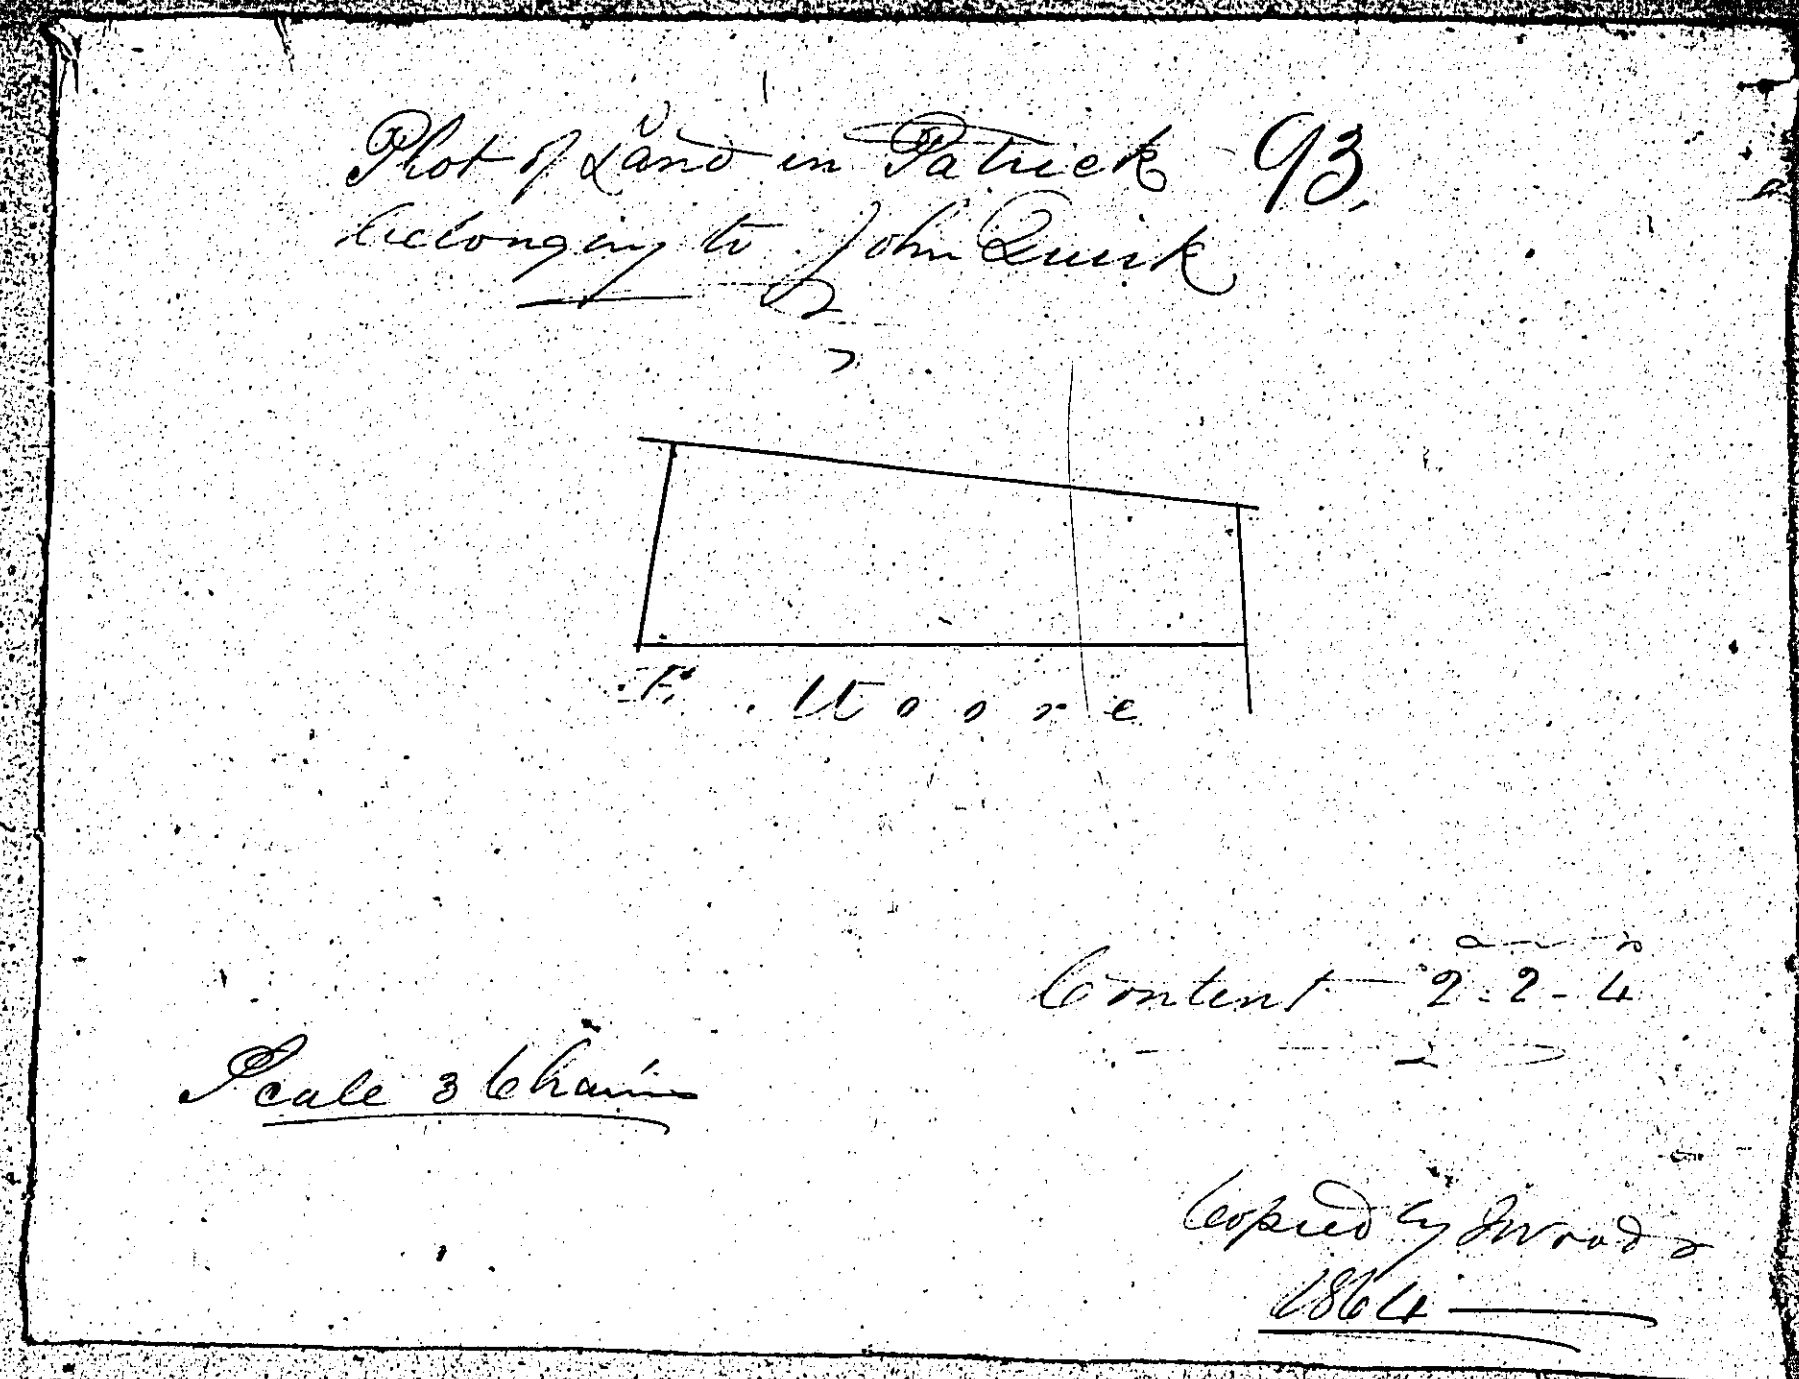 Plot of Land in Patrick 93.
belonging to John Quirk
F. Moore
a r p
Content - 2 - 2 - 4
Scale 3 Chains
Copied by J Woods
1864